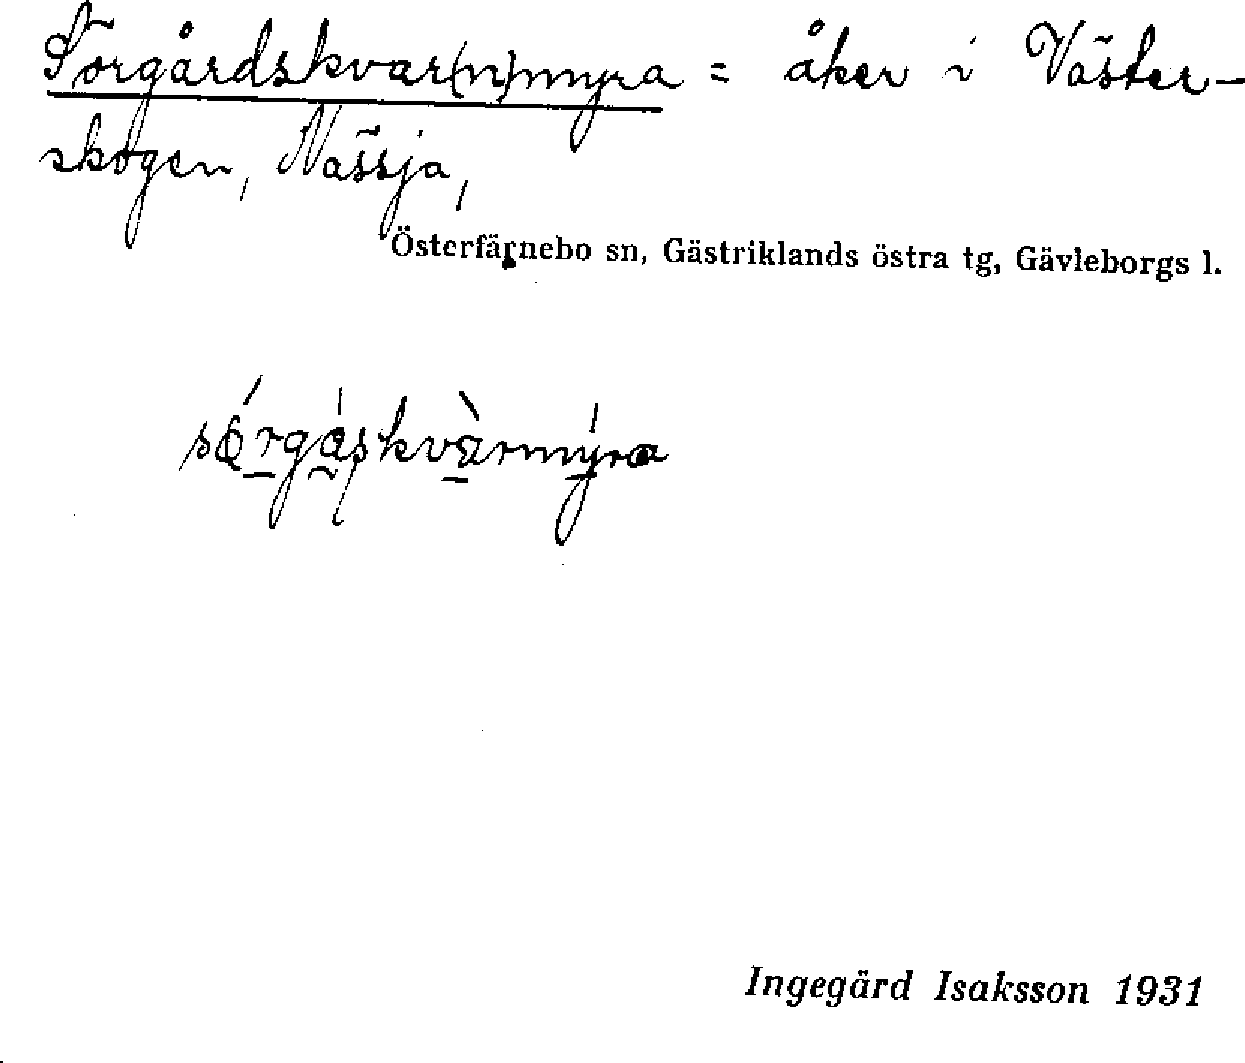 Sörgårdskvar(n)myra = åker i Väster-
skogen, Nässja,
Österfärnebo sn, Gästriklands östra tg, Gävleborgs l.
sǿrgåskvàrmýra
Ingegärd Isaksson 1931